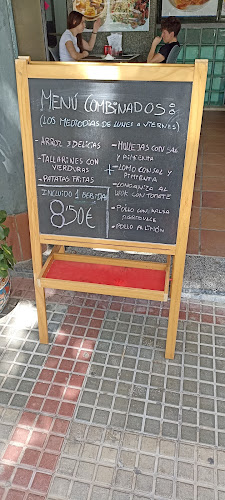 MENÚ COMBINADOS:
(LOS MEDIODIAS DE LUNES A VIERNES)
- ARROZ 3 DELICIAS
- TALLARINES CON
VERDURAS
- PATATAS FRITAS
INCLUIDO 1 BEBIDA
8,50€
+
- MOLLEJAS CON SAL
Y PIMIENTA
- LOMO CON SAL Y
PIMIENTA
- LONGANIZA AL
WOK CON TOMATE
- POLLO CON SALSA
AGRIDULCE
- POLLO AL LIMÓN